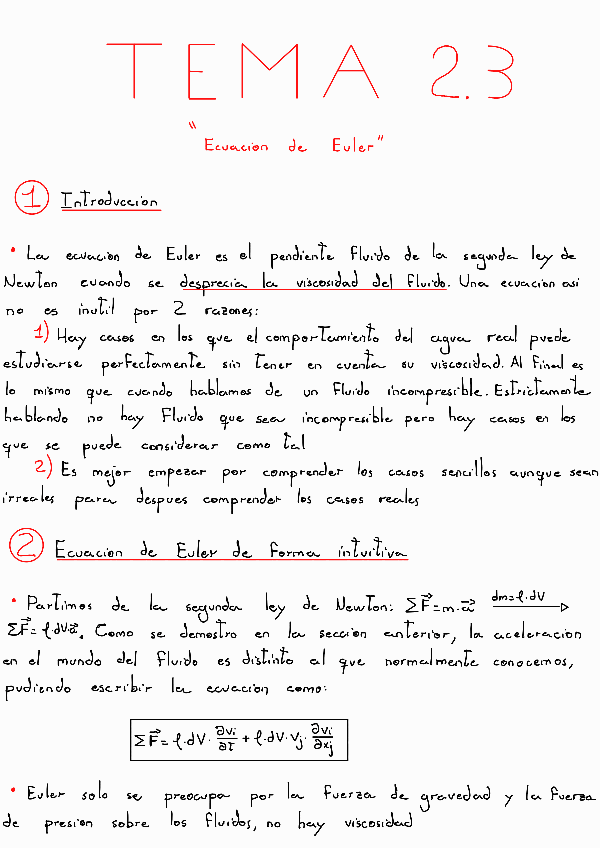 TEMA 2.3
"Ecuacion de Euler"
1 Introduccion
• La ecuacion de Euler es el pendiente fluido de la segunda ley de
Newton cuando se desprecia la viscosidad del fluido. Una ecuacion asi
no es inutil por 2 razones:
1) Hay casos en los que el comportamiento del agua real puede
estudiarse perfectamente sin tener en cuenta su viscosidad. Al final es
lo mismo que cuando hablamos de un fluido incompresible. Estrictamente
hablando no hay fluido que sea incompresible pero hay casos en los
que se puede considerar como tal
2) Es mejor empezar por comprender los casos sencillos aunque sean
irreales para despues comprender los casos reales
2 Ecuacion de Euler de forma intuitiva
• Partimos de la segunda ley de Newton: ΣF⃗=m·a⃗ dm=ρ·dV →
ΣF⃗=ρ·dV·a⃗. Como se demostro en la seccion anterior, la aceleracion
en el mundo del fluido es distinto al que normalmente conocemos,
pudiendo escribir la ecuacion como:
ΣF⃗=ρ·dV·∂vi/∂t + ρ·dV·vj·∂vi/∂xj
• Euler solo se preocupa por la fuerza de gravedad y la fuerza
de presion sobre los fluidos, no hay viscosidad